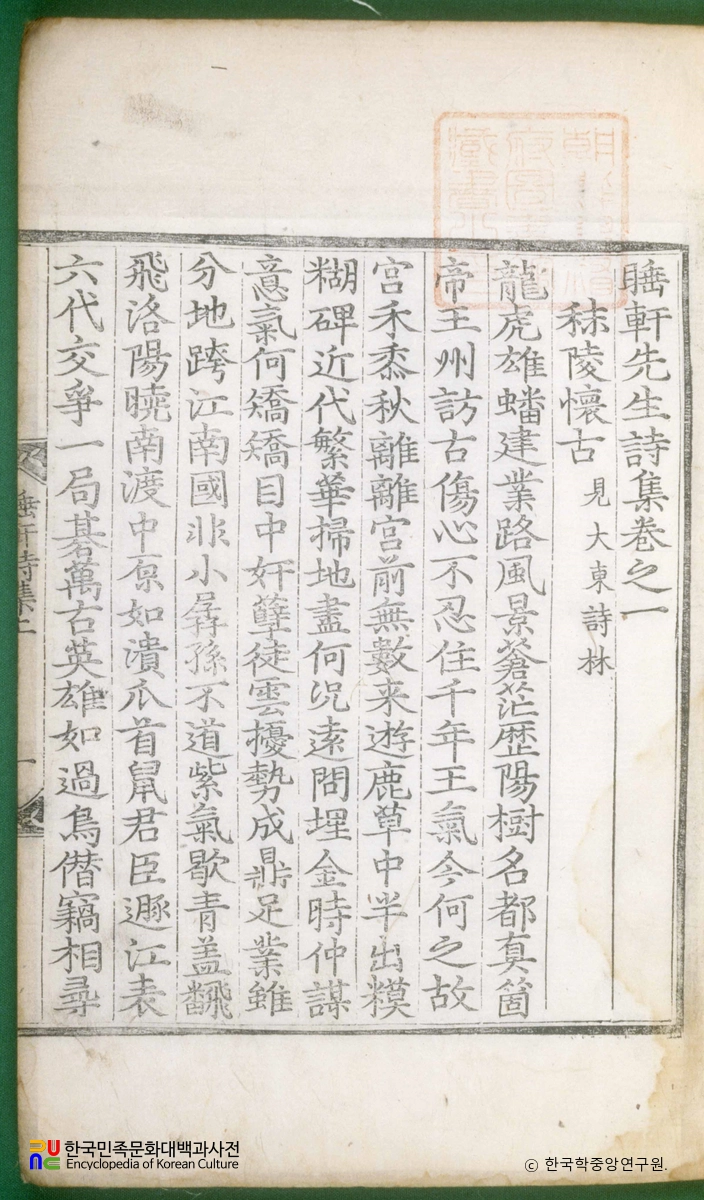 睡軒先生詩集卷之一
秣陵懷古 見大東詩林
龍虎雄蟠建業路風景蒼茫歷陽樹名都真箇
帝王州訪古傷心不忍住千年王氣今何之故
宮禾黍秋離離宮前無數来遊鹿草中半出糢
糊碑近代繁華掃地盡何况遠問埋金時仲謀
意氣何矯矯目中奸孽徒雲擾勢成鼎足業雖
分地跨江南國非小孱孫不道紫氣歇青盖飜
飛洛陽曉南渡中原如潰瓜首鼠君臣遯江表
六代交爭一局碁萬古英雄如過鳥僭竊相尋
睡軒詩集
一
한국민족문화대백과사전
Encyclopedia of Korean Culture
ⓒ 한국학중앙연구원.